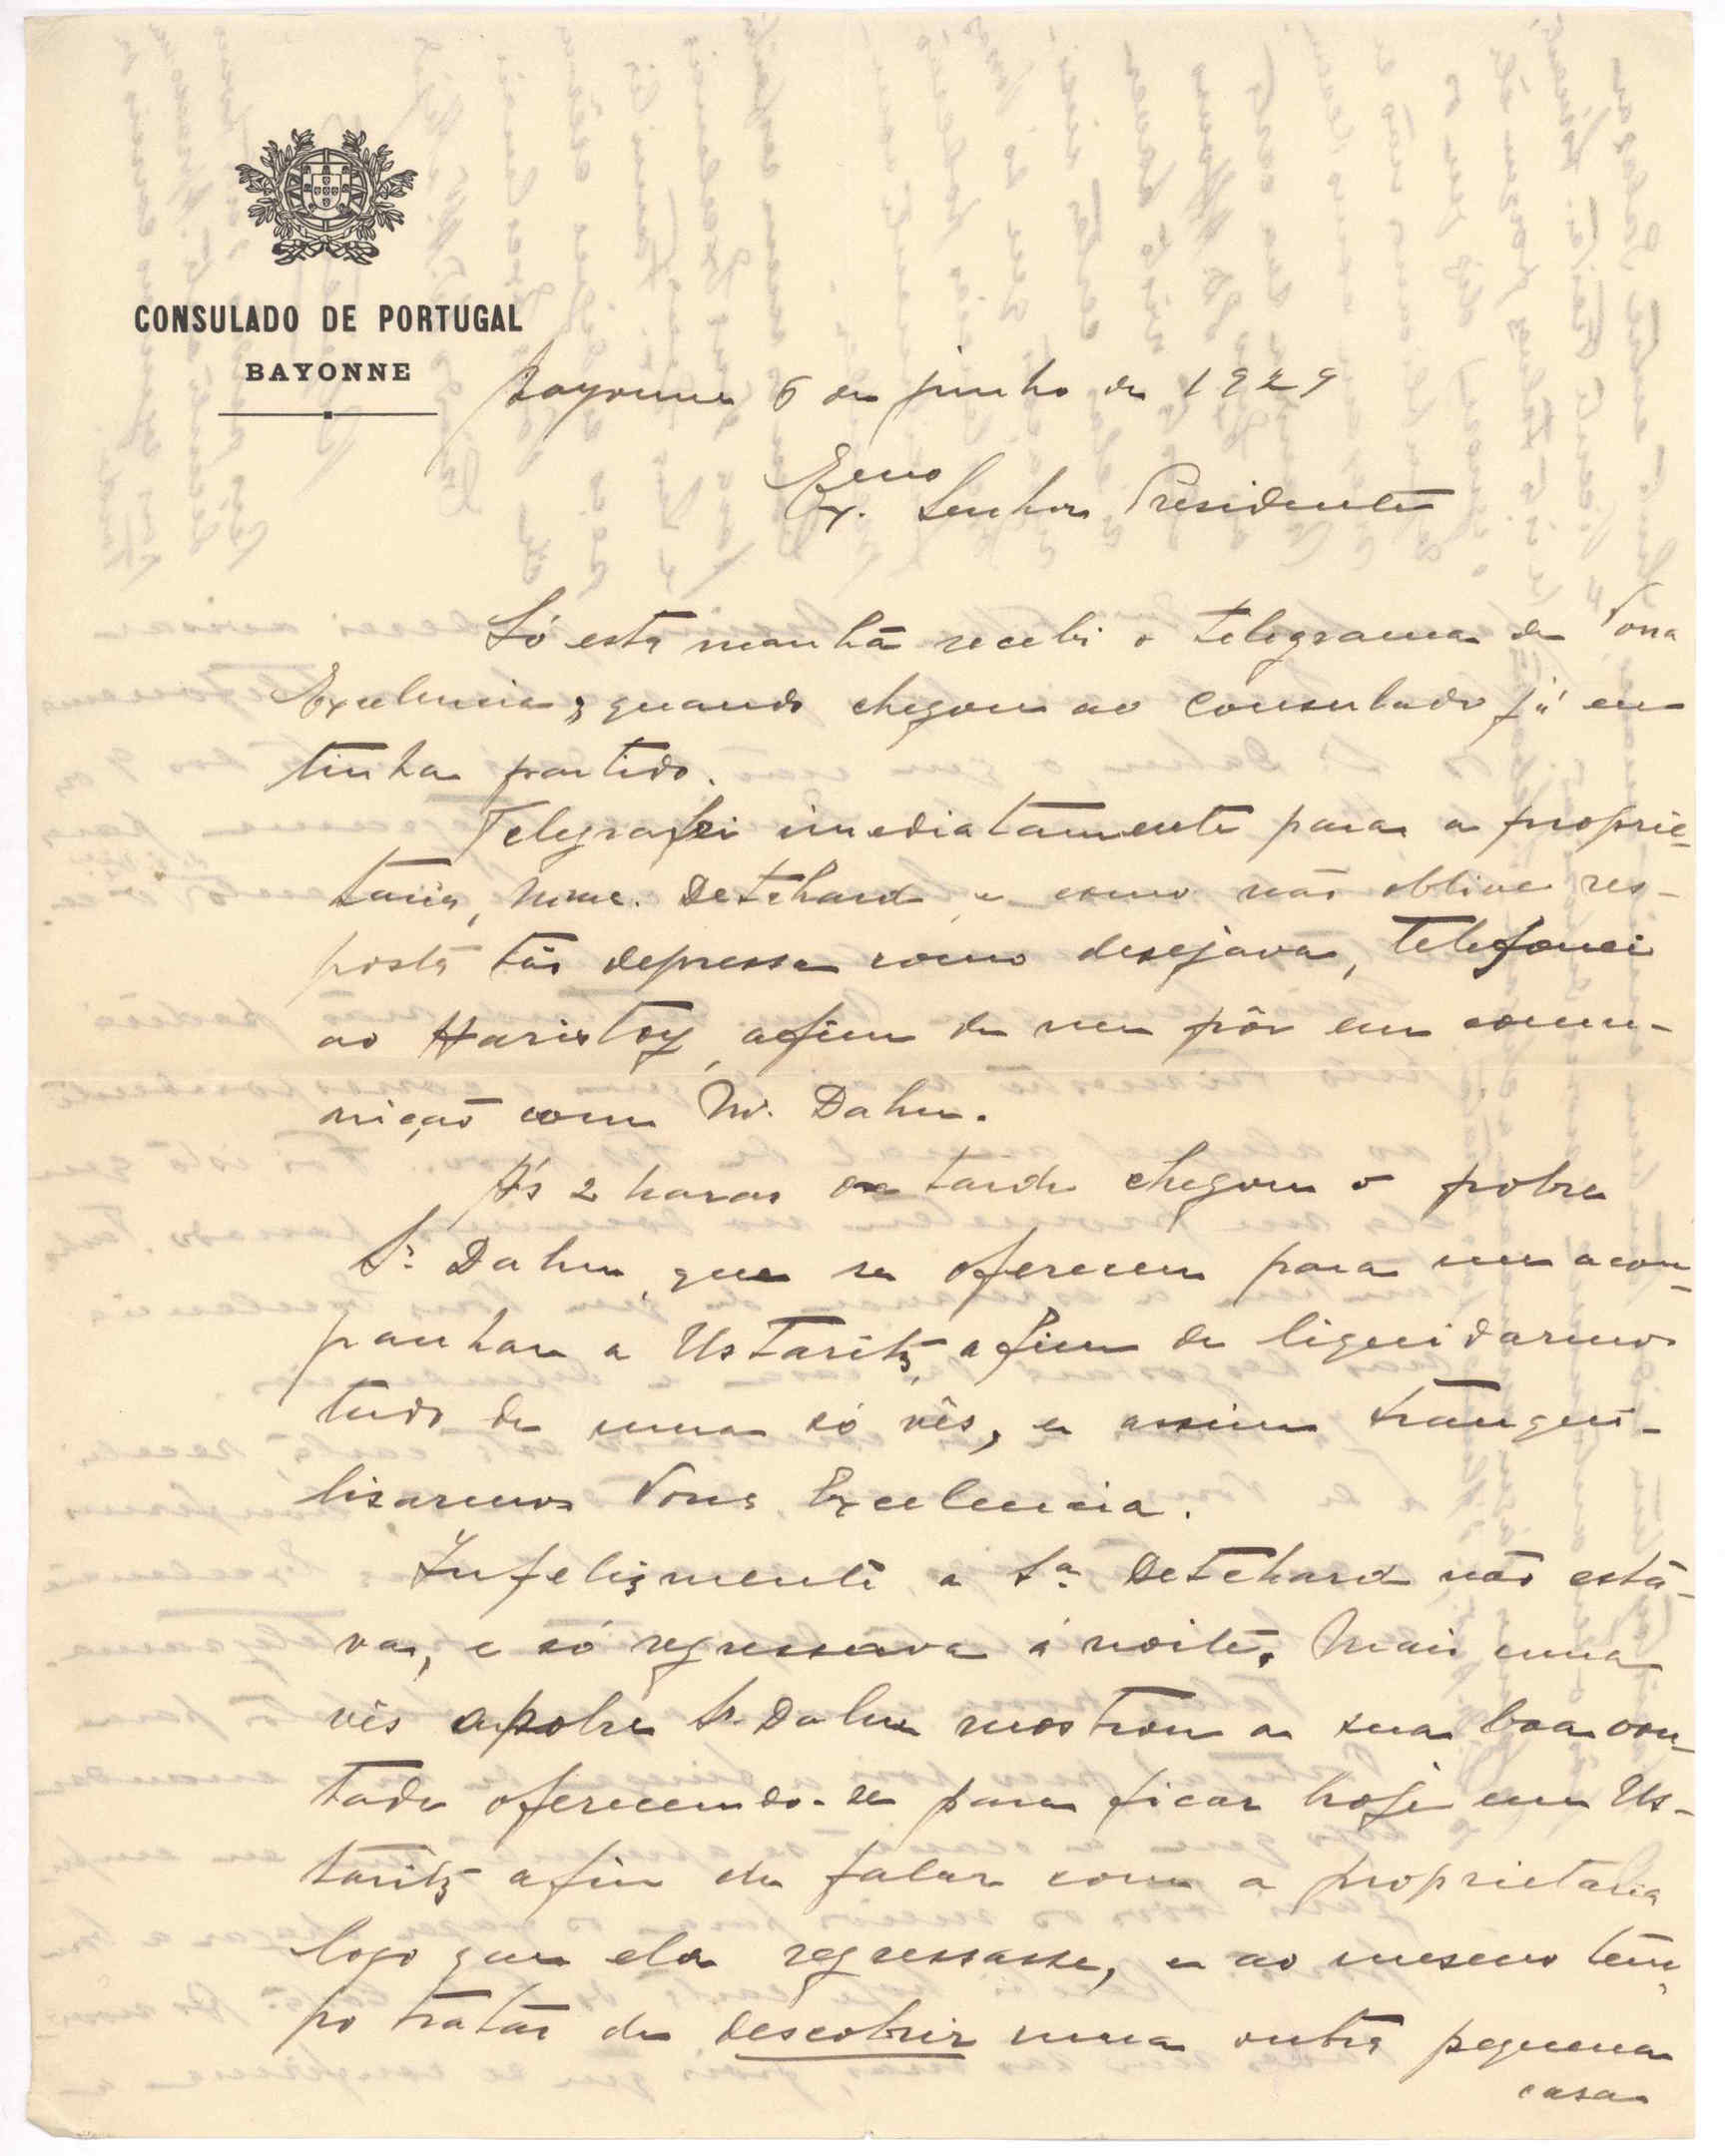 CONSULADO DE PORTUGAL
BAYONNE
Bayonne 6 de junho de 1929
Exmo. Senhor Presidente
Só esta manhã recebi o telegrama de Vossa
Excelencia; quando chegou ao consulado já eu
tinha partido.
Telegrafei imediatamente para a proprie-
taria, Mme. Detchard, e como não obtive res-
posta tão depressa como desejava, telefonei
ao Haristoy, afim de me pôr em comu-
nicação com Mr. Dahn.
Ás 2 horas da tarde chegou o pobre
Sr. Dahn, que se ofereceu para me acom-
panhar a Ustaritz, afim de liquidarmos
tudo de uma só vês, e assim tranqui-
lisarmos Vossa Excelencia.
Infelizmente a Sra. Detchard não está-
va, e só regressava á noite. Mais uma
vês o pobre Sr. Dahn mostrou a sua boa von-
tade oferecendo-se para ficar hoje em Us-
taritz afim de falar com a proprietaria
logo que ela regressasse, e ao mesmo tem-
po tratar de descobrir uma outra pequena
casa